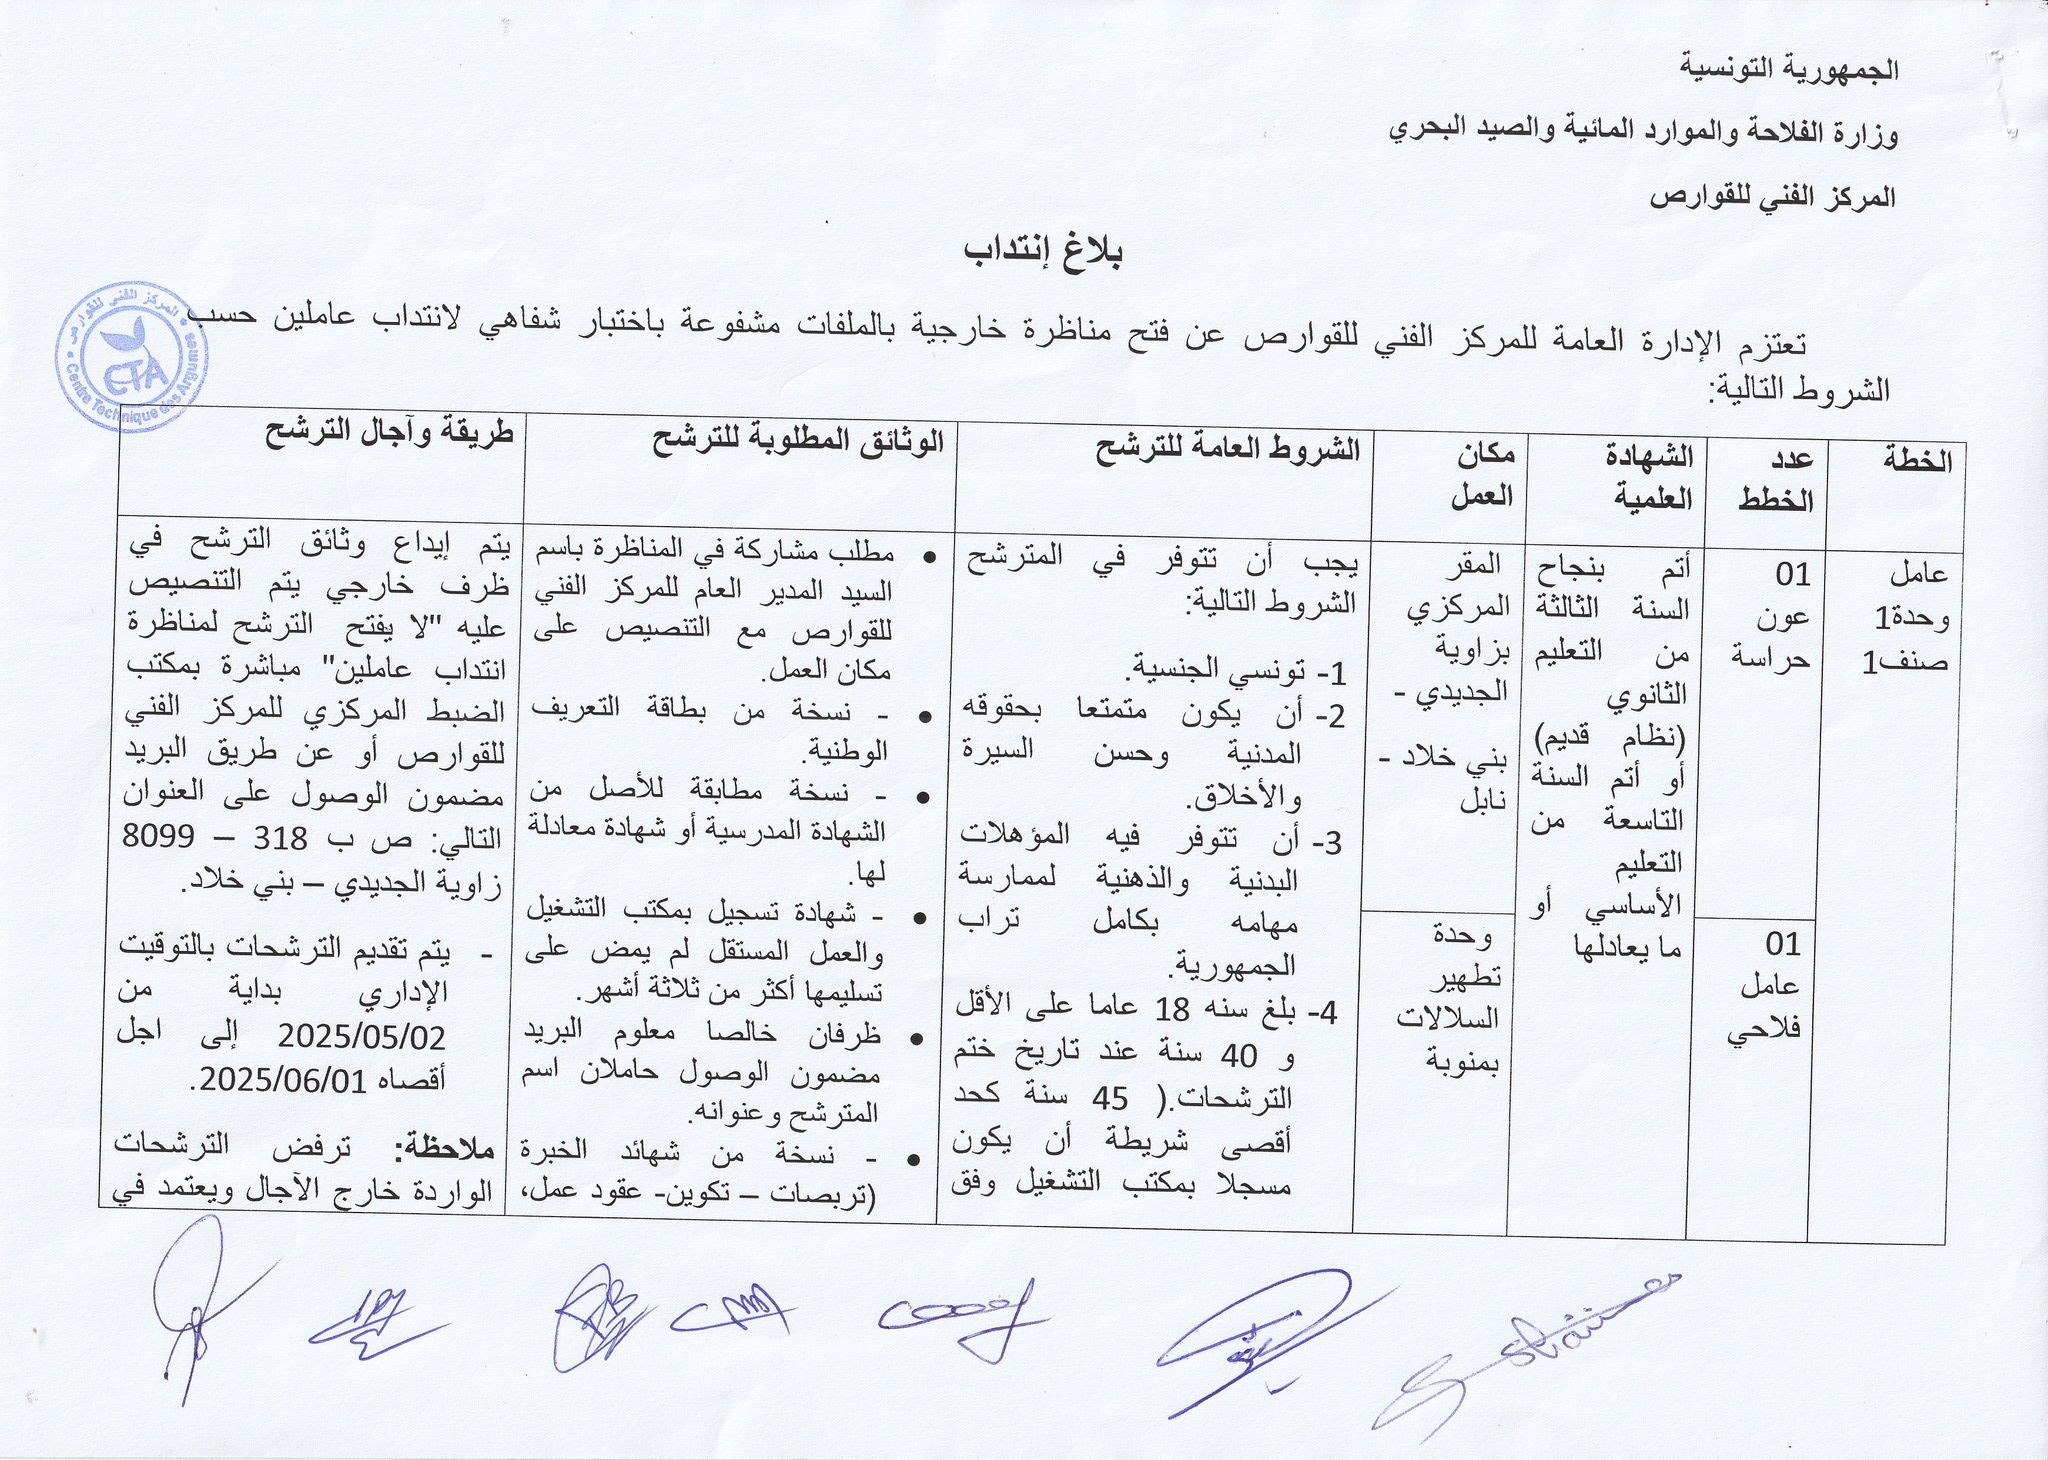 الجمهورية التونسية
وزارة الفلاحة والموارد المائية والصيد البحري
المركز الفني للقوارص
بلاغ إنتداب
تعتزم الإدارة العامة للمركز الفني للقوارص عن فتح مناظرة خارجية بالملفات مشفوعة باختبار شفاهي لانتداب عاملين حسب
الشروط التالية:
المركز الفني للقوارص
CTA
Centre Technique des Agrumes
الخطة
عدد
الخطط
الشهادة
العلمية
مكان
العمل
الشروط العامة للترشح
الوثائق المطلوبة للترشح
طريقة وآجال الترشح
عامل
وحدة1
صنف1
01
عون
حراسة
01
عامل
فلاحي
أتم بنجاح
السنة الثالثة
من التعليم
الثانوي
(نظام قديم)
أو أتم السنة
التاسعة من
التعليم
الأساسي أو
ما يعادلها
المقر
المركزي
بزاوية
الجديدي -
بني خلاد -
نابل
وحدة
تطهير
السلالات
بمنوبة
يجب أن تتوفر في المترشح
الشروط التالية:
1- تونسي الجنسية.
2- أن يكون متمتعا بحقوقه
المدنية وحسن السيرة
والأخلاق.
3- أن تتوفر فيه المؤهلات
البدنية والذهنية لممارسة
مهامه بكامل تراب
الجمهورية.
4- بلغ سنه 18 عاما على الأقل
و 40 سنة عند تاريخ ختم
الترشحات.( 45 سنة كحد
أقصى شريطة أن يكون
مسجلا بمكتب التشغيل وفق
• مطلب مشاركة في المناظرة باسم
السيد المدير العام للمركز الفني
للقوارص مع التنصيص على
مكان العمل.
• - نسخة من بطاقة التعريف
الوطنية.
• - نسخة مطابقة للأصل من
الشهادة المدرسية أو شهادة معادلة
لها.
• - شهادة تسجيل بمكتب التشغيل
والعمل المستقل لم يمض على
تسليمها أكثر من ثلاثة أشهر.
• ظرفان خالصا معلوم البريد
مضمون الوصول حاملان اسم
المترشح وعنوانه.
• - نسخة من شهائد الخبرة
(تربصات – تكوين- عقود عمل،
يتم إيداع وثائق الترشح في
ظرف خارجي يتم التنصيص
عليه "لا يفتح الترشح لمناظرة
انتداب عاملين" مباشرة بمكتب
الضبط المركزي للمركز الفني
للقوارص أو عن طريق البريد
مضمون الوصول على العنوان
التالي: ص ب 318 – 8099
زاوية الجديدي – بني خلاد.
- يتم تقديم الترشحات بالتوقيت
الإداري بداية من
2025/05/02 إلى اجل
أقصاه 2025/06/01.
ملاحظة: ترفض الترشحات
الواردة خارج الآجال ويعتمد في